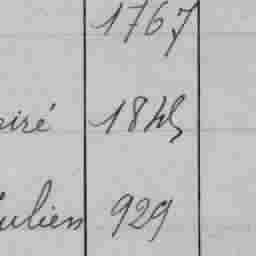 1767
oiré 1845
ulien 929